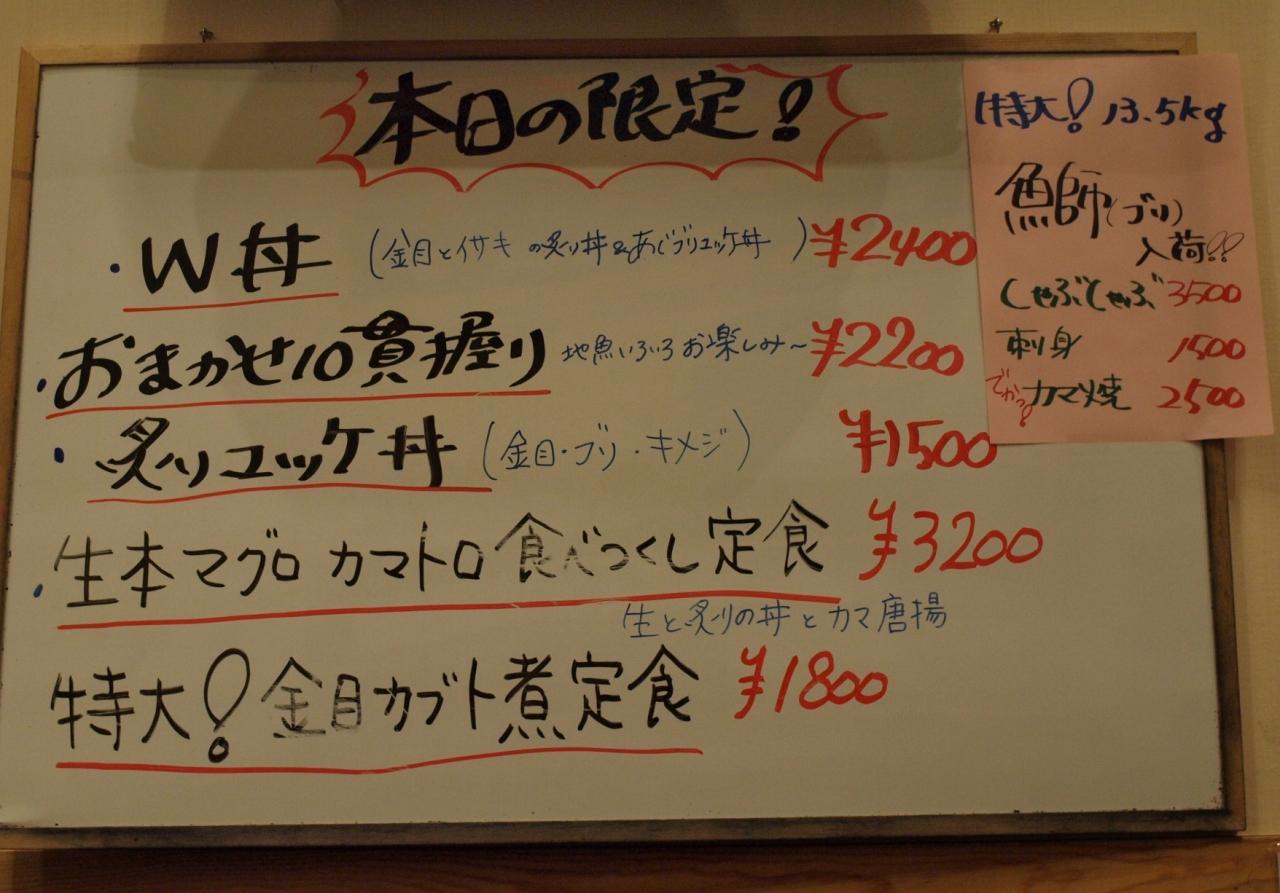 本日の限定!
・W丼 (金目とイサキの炙り丼&あじブリユッケ丼) ¥2400
・おまかせ10貫握り 地魚いろいろお楽しみ~ ¥2200
・炙りユッケ丼 (金目・ブリ・キメジ) ¥1500
・生本マグロ カマトロ食べつくし定食 ¥3200
生と炙りの丼とカマ唐揚
特大!金目カブト煮定食 ¥1800
特大! 13.5kg
魚師(ブリ)
入荷!!
しゃぶしゃぶ 3500
刺身 1500
でかっ! カマ焼 2500